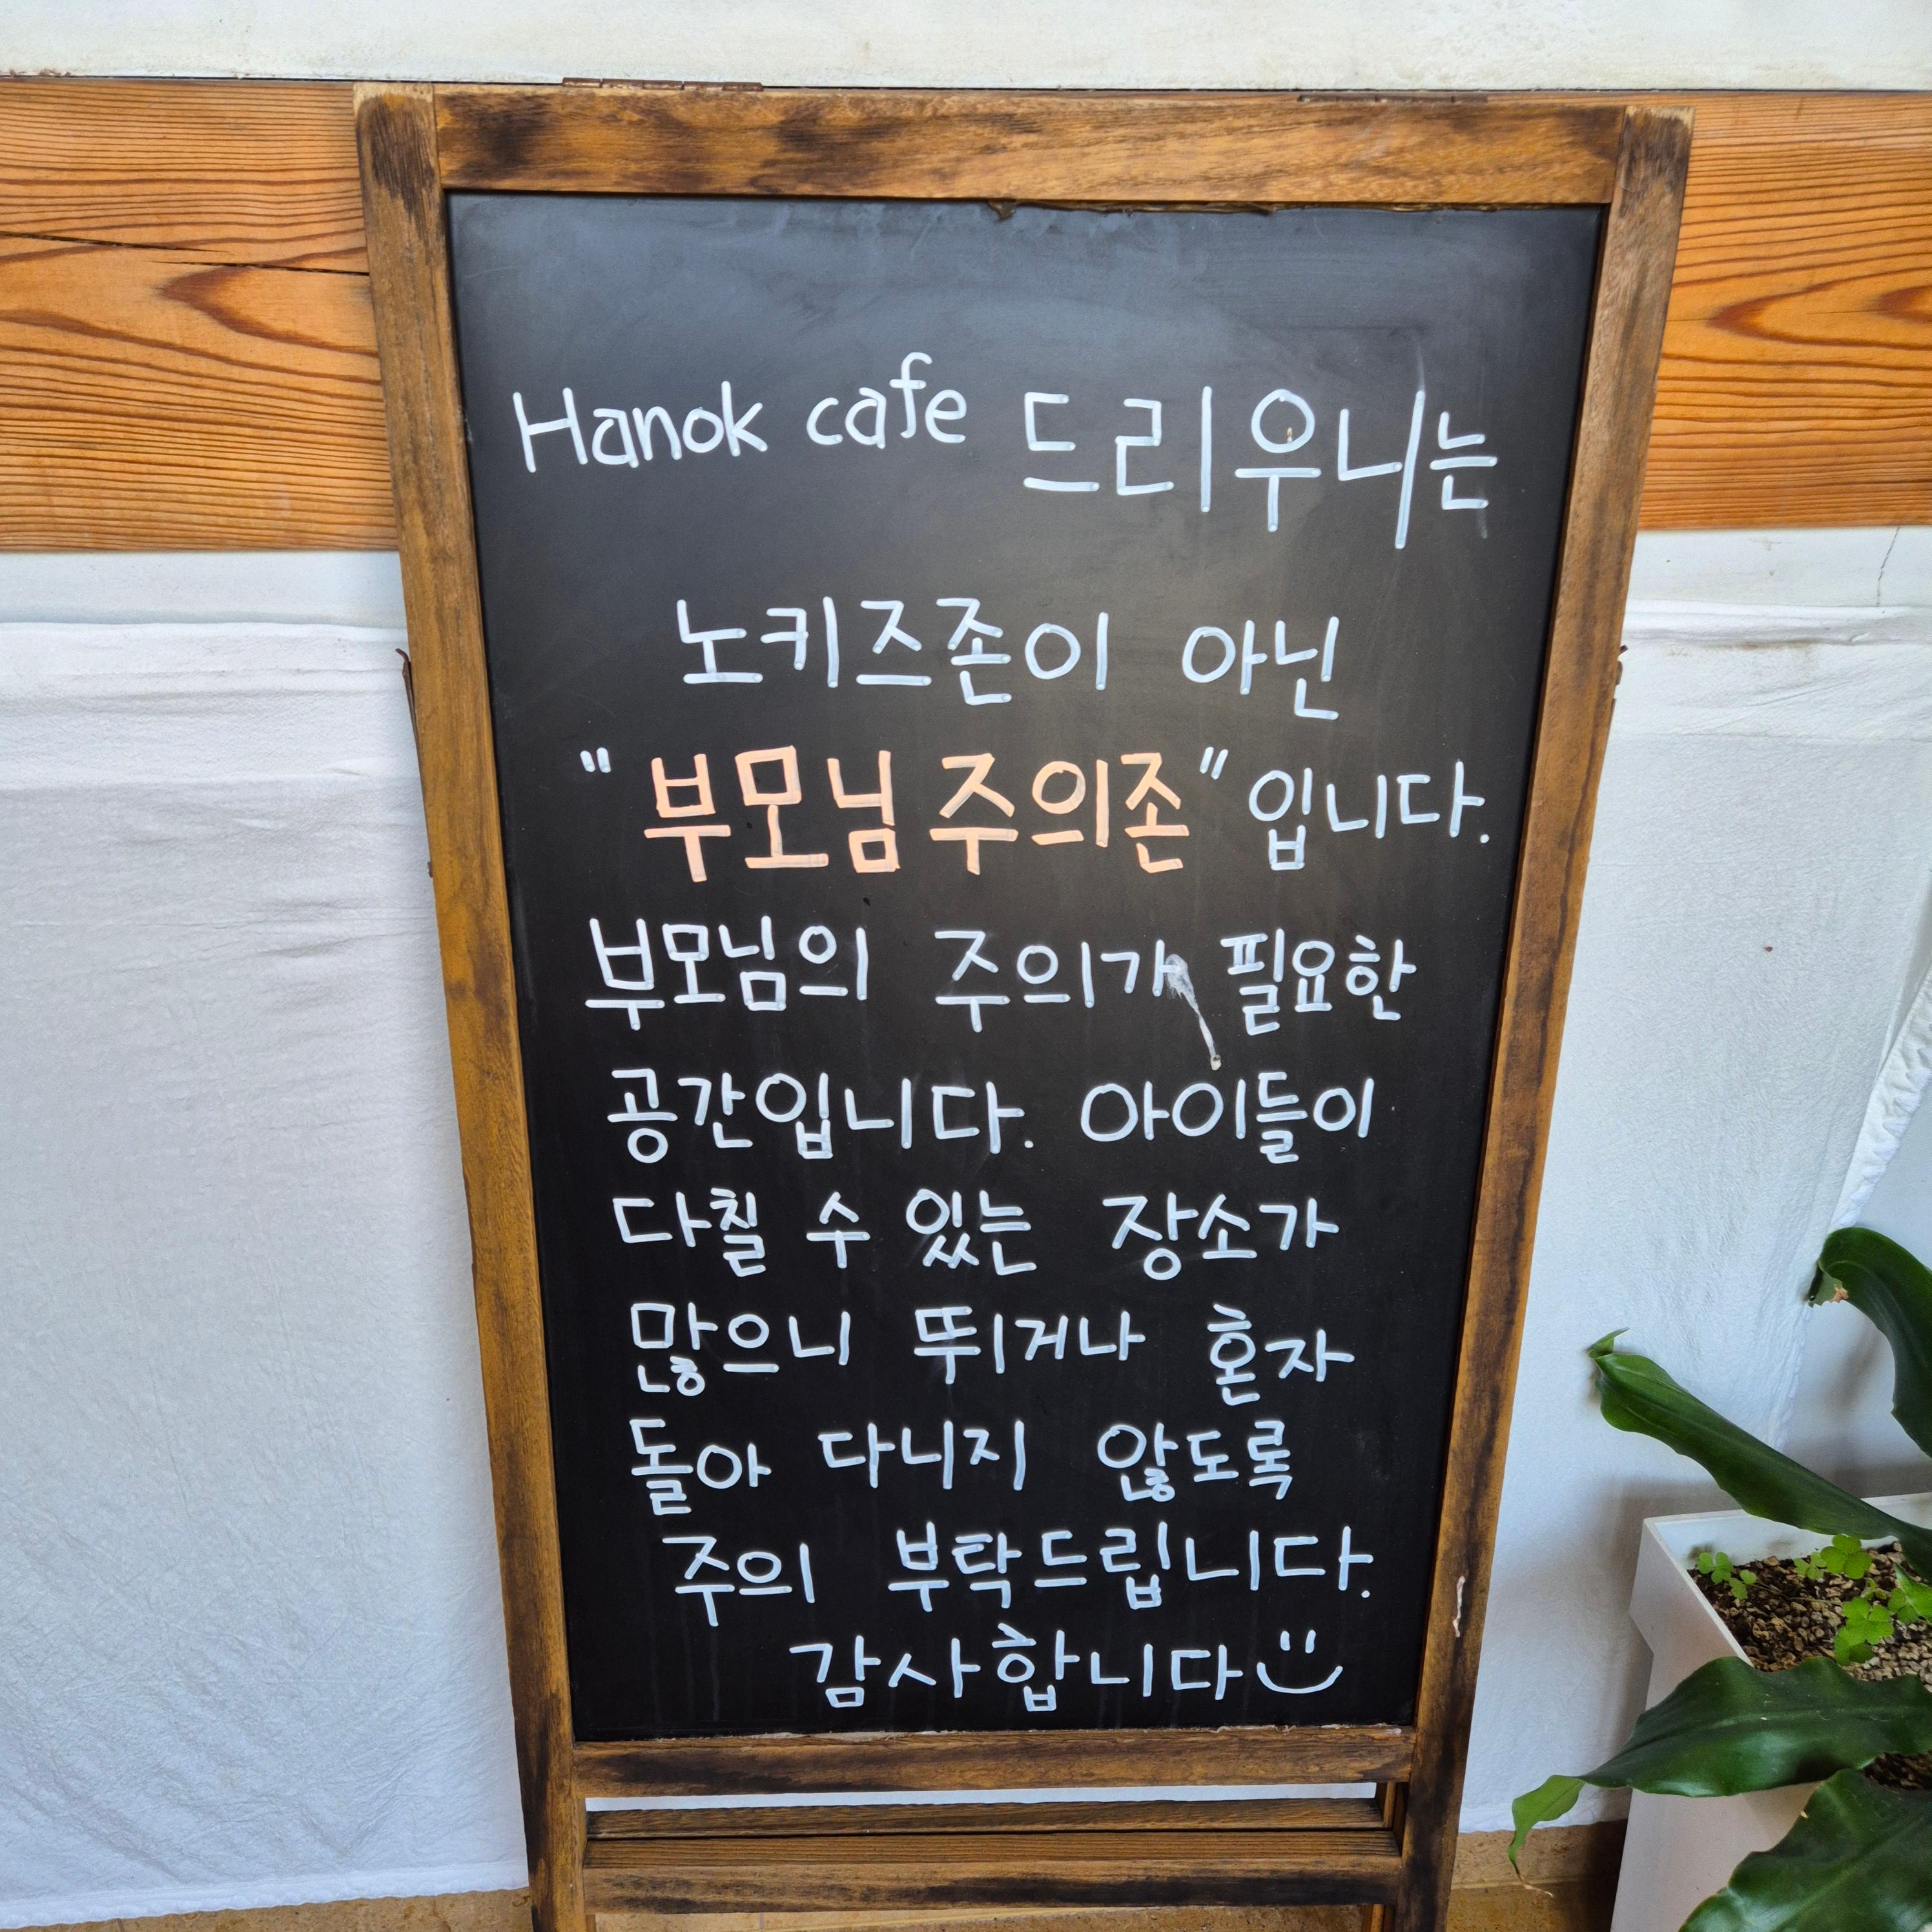 Hanok cafe 드리우니는
노키즈존이 아닌
"부모님 주의존" 입니다.
부모님의 주의가 필요한
공간입니다. 아이들이
다칠 수 있는 장소가
많으니 뛰거나 혼자
돌아 다니지 않도록
주의 부탁드립니다.
감사합니다